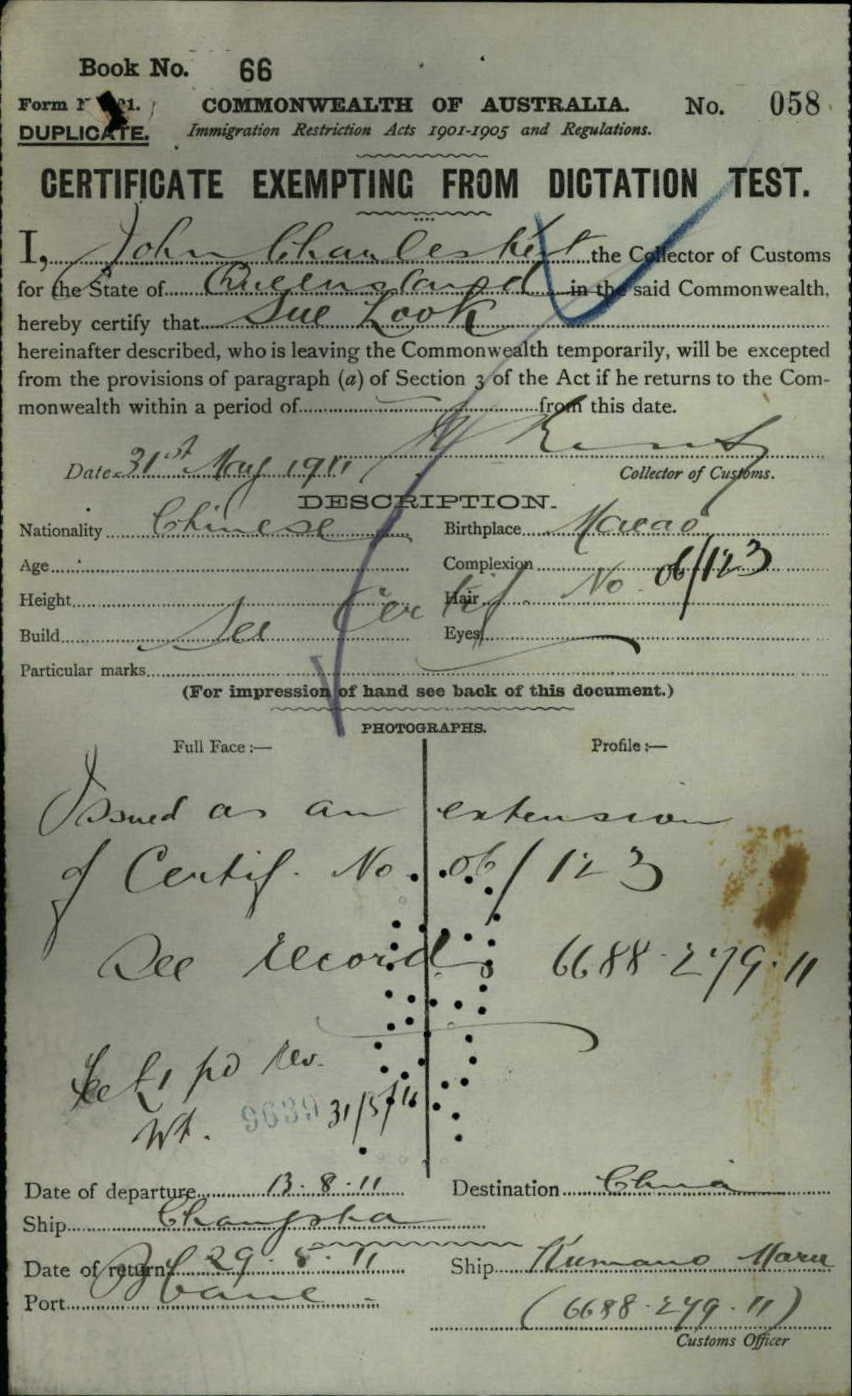 Book No. 66
Form 21. COMMONWEALTH OF AUSTRALIA. No. 058
DUPLICATE. Immigration Restriction Acts 1901-1905 and Regulations.
CERTIFICATE EXEMPTING FROM DICTATION TEST.
I, John Charles Kent the Collector of Customs
for the State of Queensland in the said Commonwealth,
hereby certify that Sue Look
hereinafter described, who is leaving the Commonwealth temporarily, will be excepted
from the provisions of paragraph (a) of Section 3 of the Act if he returns to the Com-
monwealth within a period of from this date.
Date 31st May 1911 Collector of Customs.
DESCRIPTION.
Nationality Chinese Birthplace Macao
Age Complexion
Height Hair
See Certif No 06/123
Build Eyes
Particular marks
(For impression of hand see back of this document.)
PHOTOGRAPHS.
Full Face :— Profile :—
Issued as an extension
of Certif. No. 06/123
See record 6688.279.11
Fee £1 pd
31/5/11
Date of departure 13.8.11 Destination China
Ship Changsha
Date of return 29.5.11 Ship Kumano Maru
Port Bbane
(6688.279.11)
Customs Officer